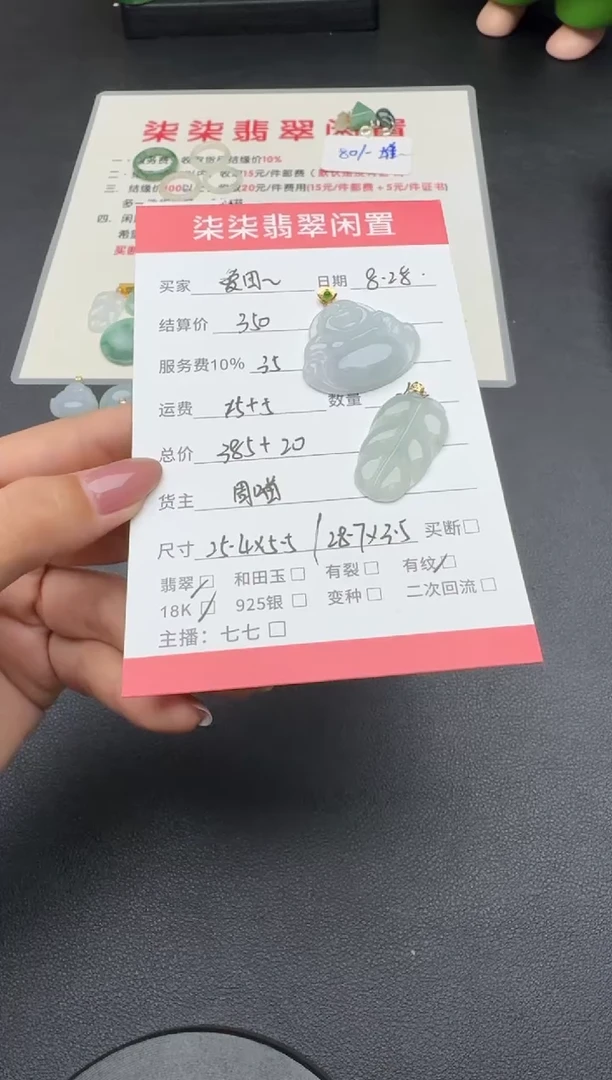 柒柒翡翠闲置
80/-堆
结缘价10%
15元/件邮费
三. 结缘价100以 20元/件费用(15元/件邮费 + 5元/件证书)
四. 闲
柒柒翡翠闲置
买家 爱团~ 日期 8.28.
结算价 350
服务费10% 35
运费 15+5 数量
总价 385+20
货主 周喵
尺寸 25.4x5.5 / 28.7x3.5 买断□
翡翠□ 和田玉□ 有裂□ 有纹□
18K□ 925银□ 变种□ 二次回流□
主播：七七□